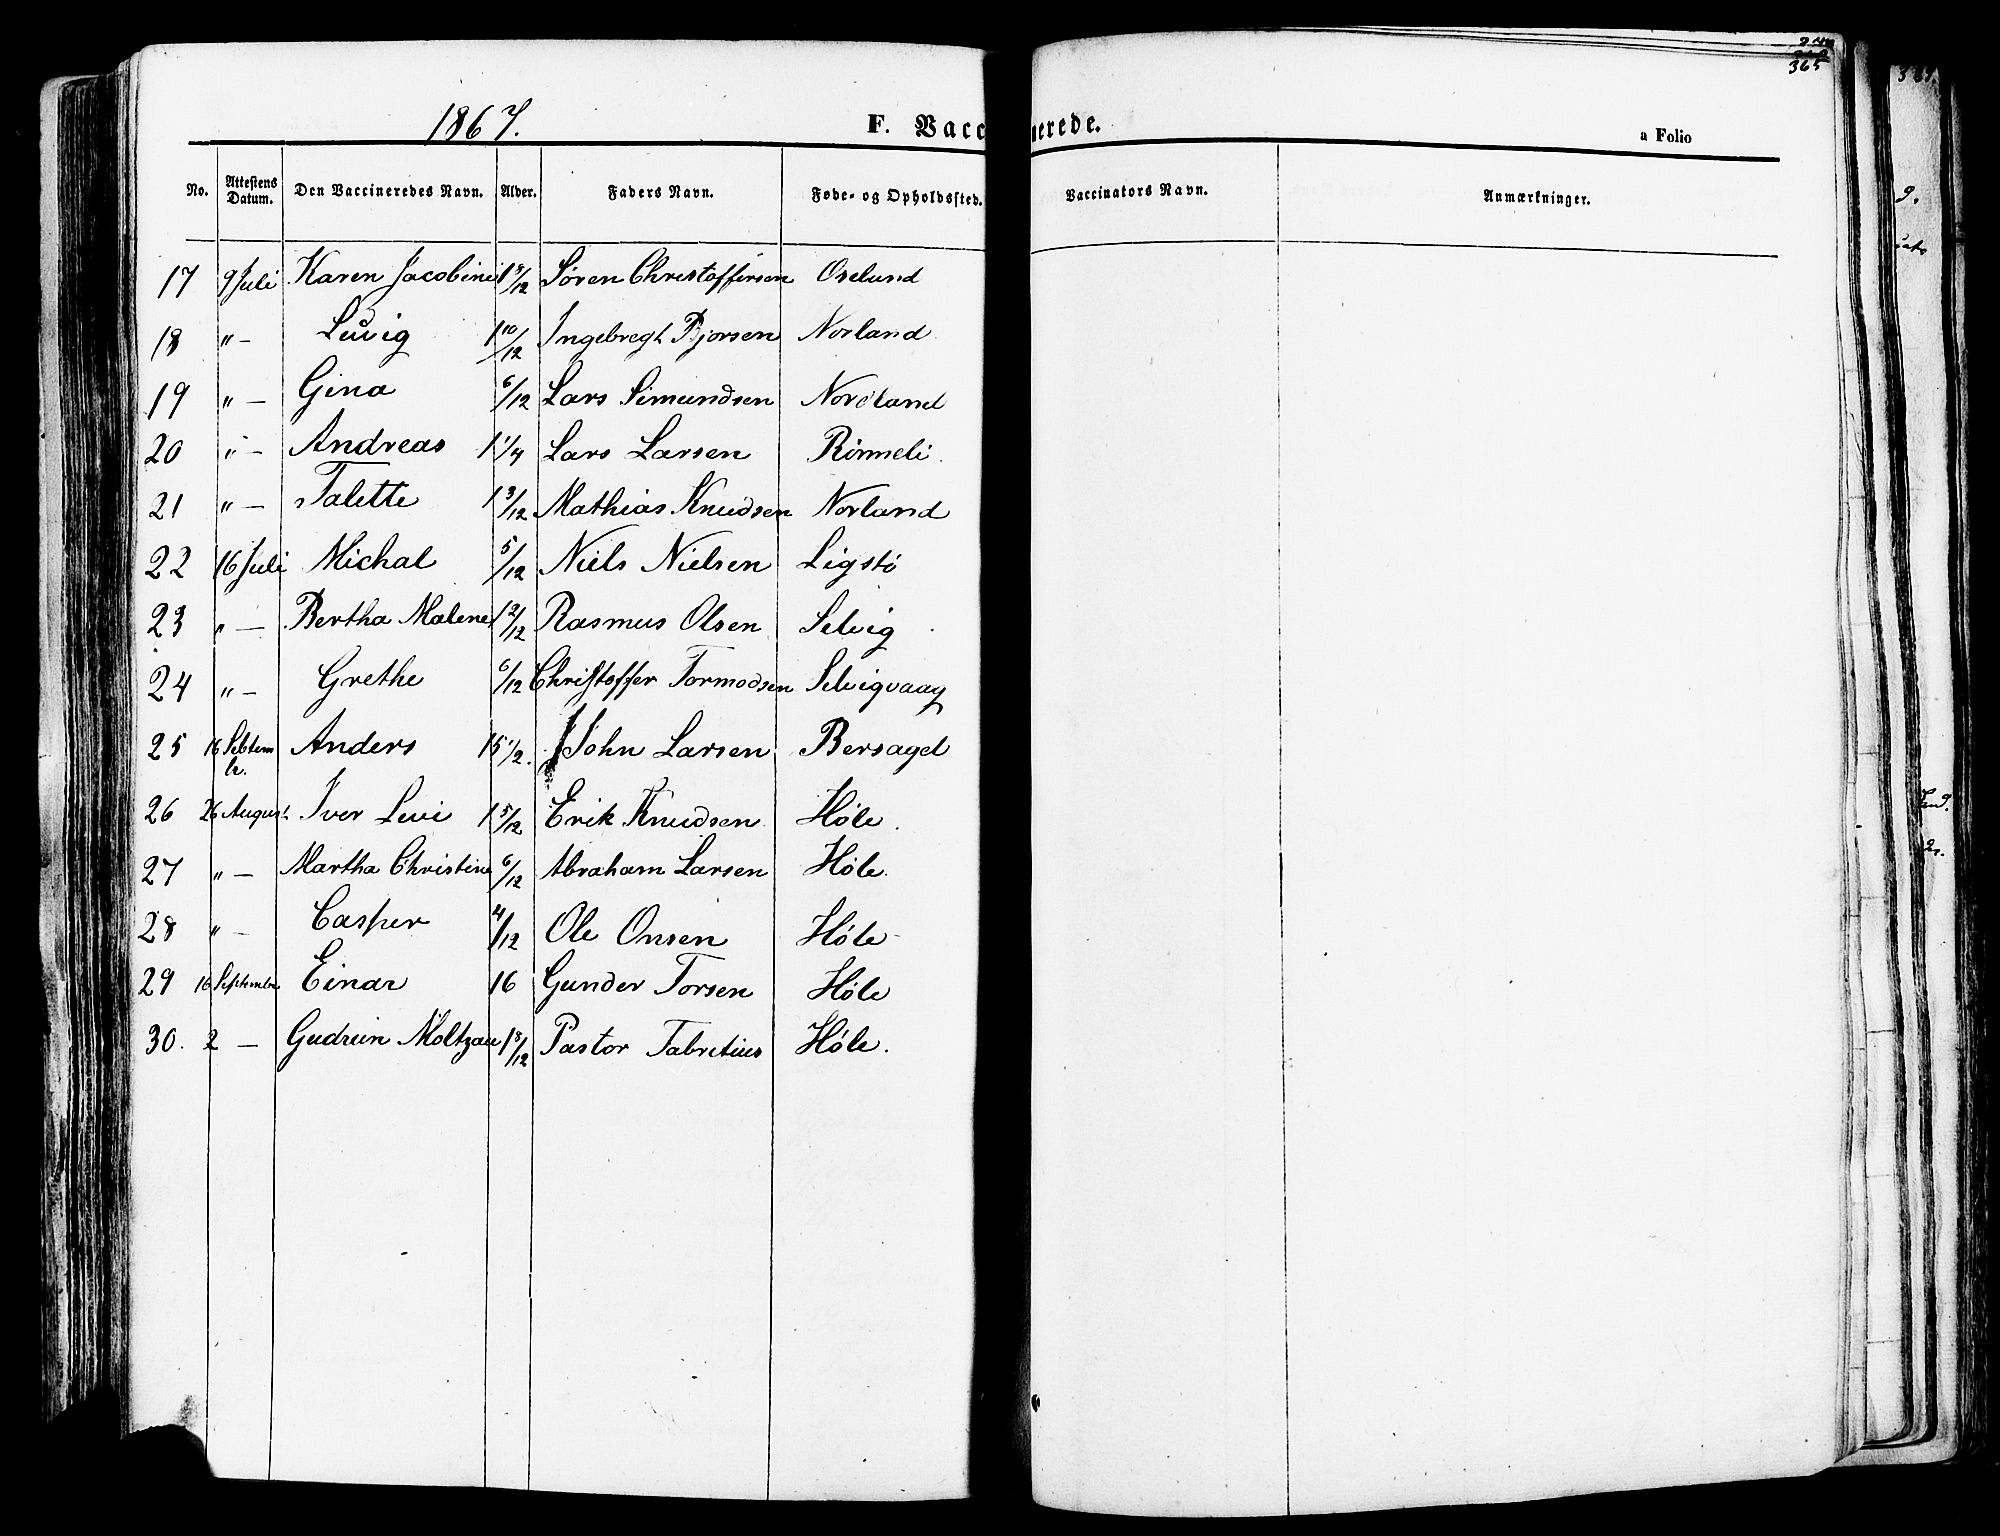 365
1867. F. Vaccinerede. a Folio
No. Attestens Datum. Den Vaccineredes Navn. Alder. Faders Navn. Føde- og Opholdssted. Vaccinators Navn. Anmærkninger.
17 9 Juli Karen Jacobine 1 3/12 Søren Christoffersen Oselund
18 "- Luvig 1 10/12 Ingebregt Bjorsen Norland
19 "- Gina 6/12 Lars Simundsen Nordland
20 "- Andreas 1 1/4 Lars Larsen Rönneli
21 "- Talette 1 3/12 Mathias Knudsen Norland
22 16 Juli Michal 5/12 Niels Nielsen Ligstö
23 "- Bertha Malene 1 2/12 Rasmus Olsen Selvig
24 "- Grethe 6/12 Christoffer Tormodsen Selvigvaag
25 16 Sebtembr. Anders 15 1/2. John Larsen Bersagel
26 26 August Iver Levi 1 5/12 Erik Knudsen Høle.
27 "- Martha Christine 6/12 Abraham Larsen Høle.
28 "- Casper 4/12 Ole Onsen Høle
29 16 Septembr. Einar 16 Gunder Torsen Høle
30. 2 - Gudrun Moltzau 1 8/12 Pastor Fabritius Høle.